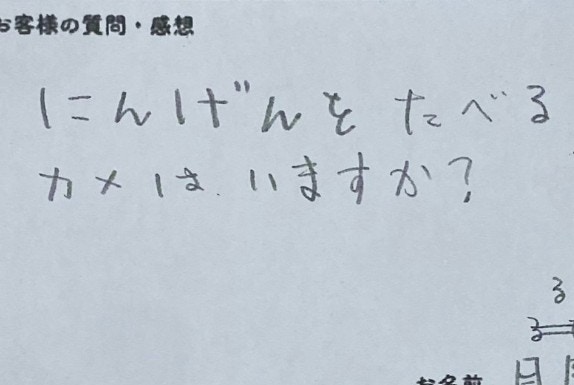 お客様の質問・感想
にんげんを たべる
カメは いますか?
る
る
お名前